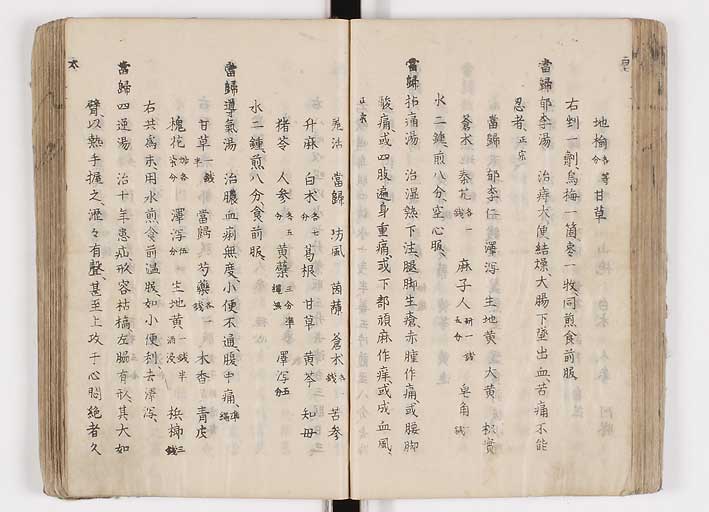 地楡 各等分 甘草
右剉一劑、烏梅一箇、棗一枚同煎食前服
當歸郁李湯 治痔大便結燥、大腸下墜出血、苦痛不能
忍者、正宗
當歸 郁李仁 澤瀉 生地黄 大黄 枳實
蒼朮 秦艽 各一錢 麻子人 研一錢五分 皂角 一錢
水二鍾、煎八分、空心服、
當歸拈痛湯 治湿熱下注、腿脚生瘡、赤腫作痛、或腰脚
駿痛、或四肢遍身重痛、或下部頑麻作痒、或成血風、
正宗
羌活 當歸 防風 茵蔯 蒼朮 各一錢 苦参
升麻 白朮 各七分 葛根 甘草 黄芩 知母
猪苓 人参 各五分 黄蘗 三分 澤瀉 五分
水二鍾、煎八分、食前服、
當歸導氣湯 治膿血痢無度、小便不通腹中痛、準縄
甘草 一錢半 當歸 芍藥 各一錢 木香 青皮
槐花 各七分 澤瀉 五分 生地黄 一錢半酒浸 梹榔 三錢
右共爲末用水煎食前温服、如小便利、去澤瀉、
當歸四逆湯 治十羊患疝形容枯槁左脇有形、其大如
臂、以熱手握之、瀝々有聲、甚至上攻于心悶絶者久